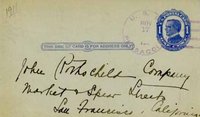 1911
U. S.
NOV
THIS SIDE OF CARD IS FOR ADDRESS ONLY
John Rothschild Company
Market & Spear Streets
San Francisco California